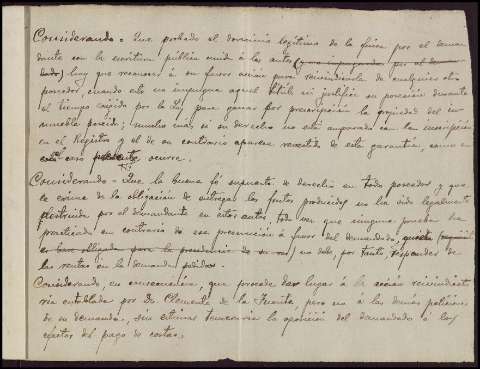 Considerando = Que probado el dominio legítimo de la finca por el deman
dante con la escritura pública unida á los autos (y no impugnada por el deman
dado) hay que reconocer á su favor acción para reivindicarla de cualquier otro
poseedor, cuando este no impugna aquel título ni justifica su posesión durante
el tiempo exigido por la Ley para ganar por prescripción la propiedad del in
mueble poseido; mucho mas si su derecho no está amparado con la inscripción
en el Registro y el de su contrario aparece revestido de esta garantía, como en
este caso ocurre.
Considerando = Que la buena fé supuesta de derecho en todo poseedor y que
le exime de la obligación de entregar los frutos producidos no ha sido legalmente
destruida por el demandante en estos autos, toda vez que ninguna prueba ha
practicado en contrario de esa presunción á favor del demandado,
no debe, por tanto, responder de
las rentas en la demanda pedidas.
Considerando, en consecuencia, que procede dar lugar á la acción reivindicato
ria entablada por D. Clemente de la Fuente, pero no á las demás peticiones
de su demanda, sin estimar temeraria la oposición del demandado á los
efectos del pago de costas.